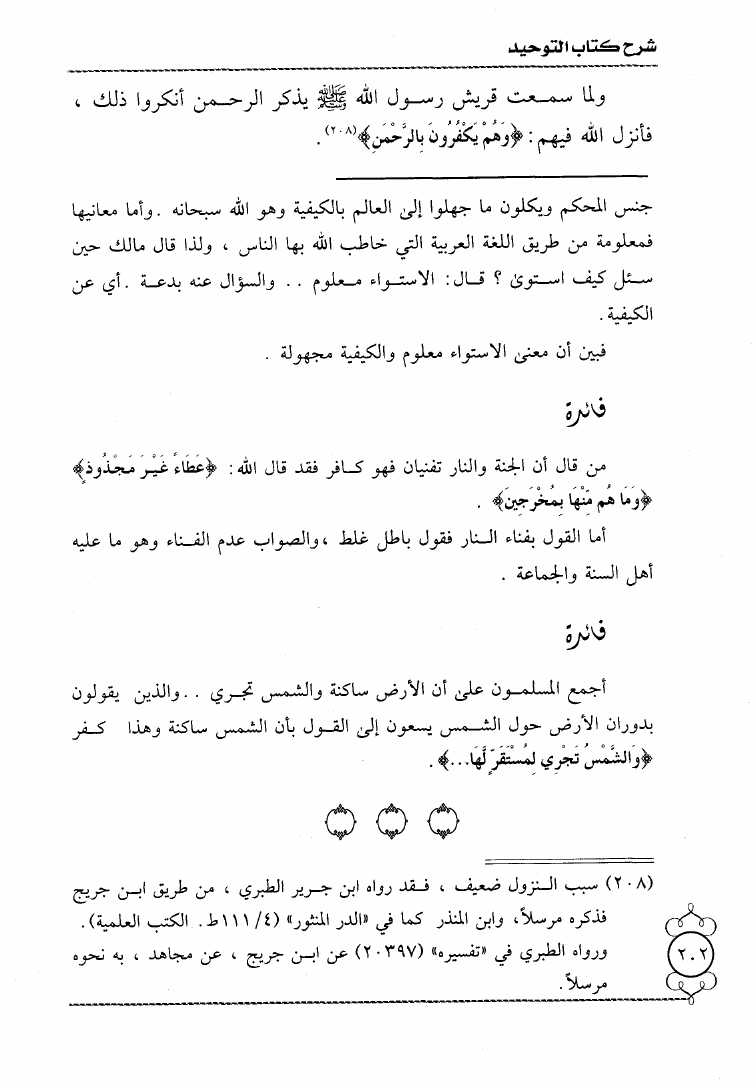 شرح كتاب التوحيد
ولما سمعت قريش رسول الله ﷺ يذكر الرحمن أنكروا ذلك ،
فأنزل الله فيهم : ﴿وَهُمْ يَكْفُرُونَ بِالرَّحْمَنِ﴾(٢٠٨) .
جنس المحكم ويكلون ما جهلوا إلى العالم بالكيفية وهو الله سبحانه . وأما معانيها
فمعلومة من طريق اللغة العربية التي خاطب الله بها الناس ، ولذا قال مالك حين
سئل كيف استوى ؟ قال : الاستواء معلوم . . والسؤال عنه بدعة . أي عن
الكيفية .
فبين أن معنى الاستواء معلوم والكيفية مجهولة .
فائدة
من قال أن الجنة والنار تفنيان فهو كافر فقد قال الله : ﴿عَطَاءً غَيْرَ مَجْذُوذٍ﴾
﴿وَمَا هُم مِّنْهَا بِمُخْرَجِينَ﴾ .
أما القول بفناء النار فقول باطل غلط ، والصواب عدم الفناء وهو ما عليه
أهل السنة والجماعة .
فائدة
أجمع المسلمون على أن الأرض ساكنة والشمس تجري . . والذين يقولون
بدوران الأرض حول الشمس يسعون إلى القول بأن الشمس ساكنة وهذا كفر
﴿وَالشَّمْسُ تَجْرِي لِمُسْتَقَرٍّ لَّهَا...﴾ .
(٢٠٨) سبب النزول ضعيف ، فقد رواه ابن جرير الطبري ، من طريق ابن جريج
فذكره مرسلاً، وابن المنذر كما في «الدر المنثور» (٤/ ١١١ط. الكتب العلمية).
ورواه الطبري في «تفسيره» (٢٠٣٩٧) عن ابن جريج ، عن مجاهد ، به نحوه
مرسلاً.
٢٠٢